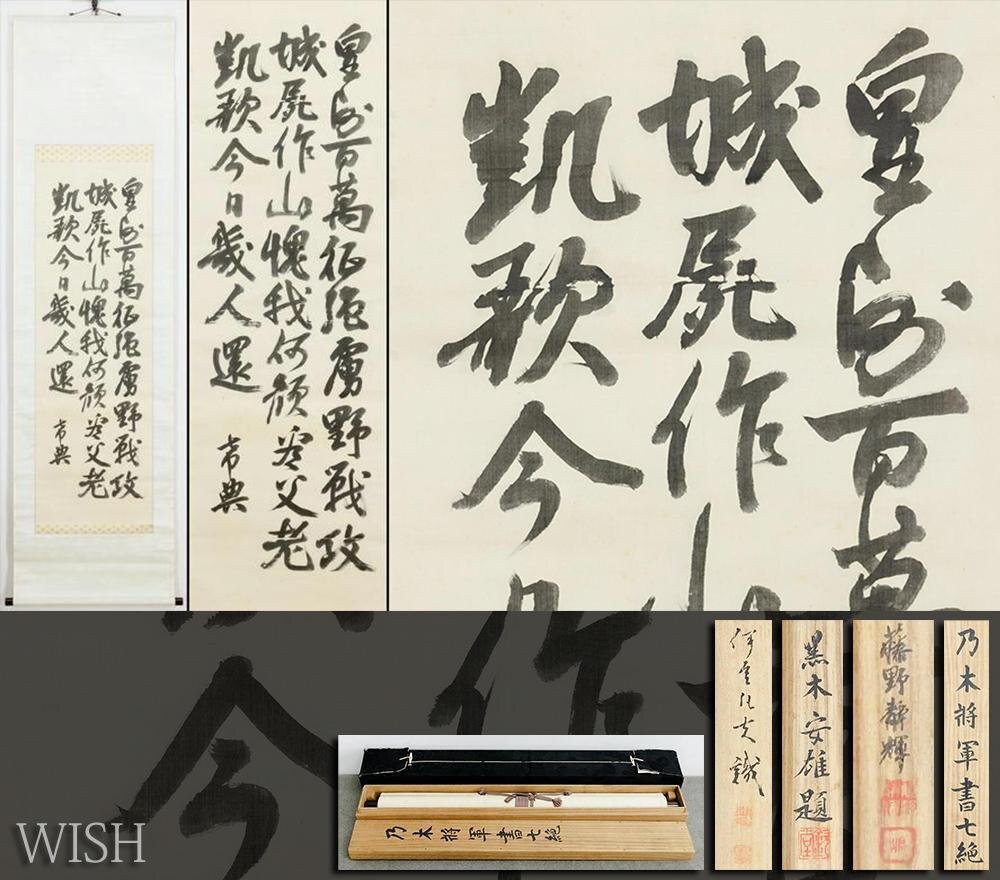 皇師百萬征強虜野戰攻
城屍作山愧我何顔看父老
凱歌今日幾人還
希典
皇師百萬征強虜野戰攻
城屍作山愧我何顔看父老
凱歌今日幾人還
希典
皇師百萬
城屍作山
凱歌今日
乃木將軍書七絶
藤野靜輝
黒木安雄題
識
乃木將軍書七絶
作
今
WISH